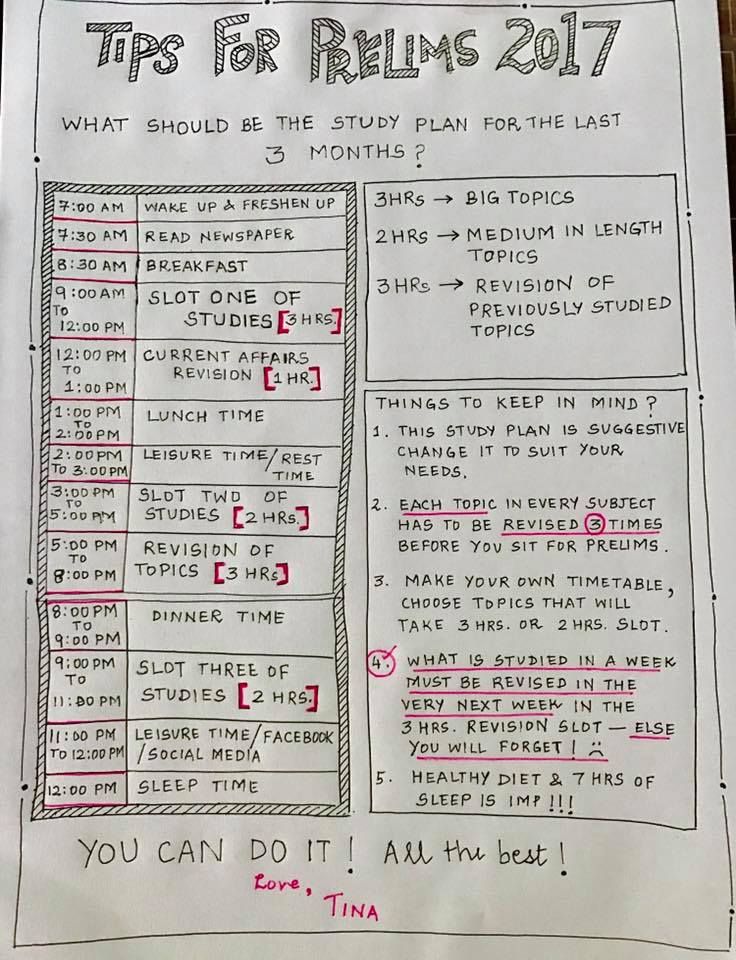 TIPS FOR PRELIMS 2017
WHAT SHOULD BE THE STUDY PLAN FOR THE LAST
3 MONTHS?
7:00 AM WAKE UP & FRESHEN UP
7:30 AM READ NEWSPAPER
8:30 AM BREAKFAST
9:00 AM SLOT ONE OF
TO STUDIES [3 HRS.]
12:00 PM
12:00 PM CURRENT AFFAIRS
TO REVISION [1 HR.]
1:00 PM
1:00 PM LUNCH TIME
TO
2:00 PM
2:00 PM LEISURE TIME/REST
TO 3:00 PM TIME
3:00 PM SLOT TWO OF
TO STUDIES [2 HRS.]
5:00 PM
5:00 PM REVISION OF
TO TOPICS [3 HRS]
8:00 PM
8:00 PM DINNER TIME
TO
9:00 PM
9:00 PM SLOT THREE OF
TO STUDIES [2 HRS.]
11:00 PM
11:00 PM LEISURE TIME/FACEBOOK
TO 12:00 PM /SOCIAL MEDIA
12:00 PM SLEEP TIME
3HRS → BIG TOPICS
2HRS → MEDIUM IN LENGTH
TOPICS
3HRS → REVISION OF
PREVIOUSLY STUDIED
TOPICS
THINGS TO KEEP IN MIND?
1. THIS STUDY PLAN IS SUGGESTIVE
CHANGE IT TO SUIT YOUR
NEEDS.
2. EACH TOPIC IN EVERY SUBJECT
HAS TO BE REVISED 3 TIMES
BEFORE YOU SIT FOR PRELIMS.
3. MAKE YOUR OWN TIMETABLE,
CHOOSE TOPICS THAT WILL
TAKE 3HRS. OR 2HRS. SLOT.
4. WHAT IS STUDIED IN A WEEK
MUST BE REVISED IN THE
VERY NEXT WEEK IN THE
3 HRS. REVISION SLOT — ELSE
YOU WILL FORGET! ☹
5. HEALTHY DIET & 7 HRS OF
SLEEP IS IMP!!!
YOU CAN DO IT! All the best!
Love,
TINA